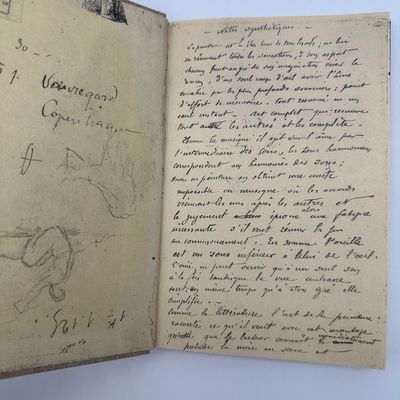 30 —
1.
Vauregard
Copenhague
— Notes Synthétiques —
La peinture est le plus beau de tous les arts ; en lui
se résument toutes les sensations, à son aspect
chacun peut au gré de son imagination créer le
roman, d'un seul coup d'œil avoir l'âme
envahie par les plus profonds souvenirs ; point
d'effort de mémoire, tout résumé en un
seul instant. — Art complet qui résume
tous les autres et les complète. —
Comme la musique il agit sur l'âme par
l'intermédiaire des sens, les tons harmonieux
correspondent aux harmonies des sons ;
mais en peinture on obtient une unité
impossible en musique où les accords
viennent les uns après les autres et
le jugement éprouve alors une fatigue
incessante s'il veut réunir la fin
au commencement. En somme l'oreille
est un sens inférieur à celui de l'œil.
L'ouïe ne peut servir qu'à un seul son
à la fois tandis que la vue embrasse
tout, en même temps qu'à son gré elle
simplifie. —
Comme la littérature l'art de la peinture
raconte ce qu'il veut avec cet avantage
que le lecteur connait immédiatement
le prélude la mise en scène et